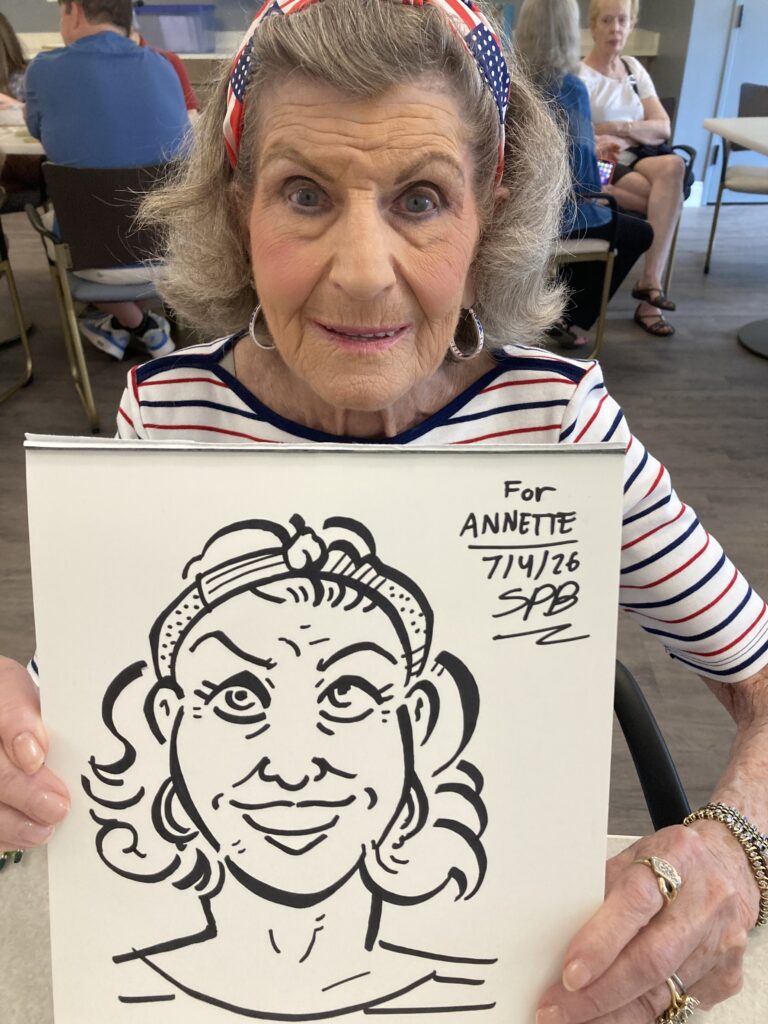 For
ANNETTE
7/4/26
SPB